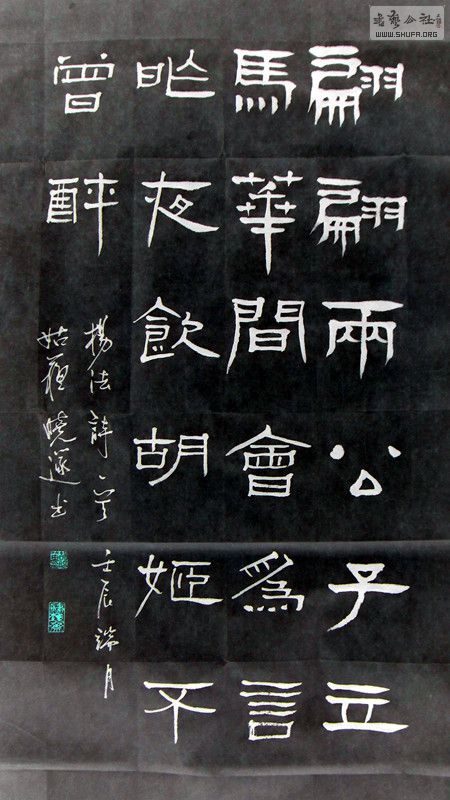 翩翩兩公子立
馬華間會爲言
昨夜飲胡姬不
曾醉
楊法詩一首 壬辰端月
姑蘇曉
書藝公社
WWW.SHUFA.ORG